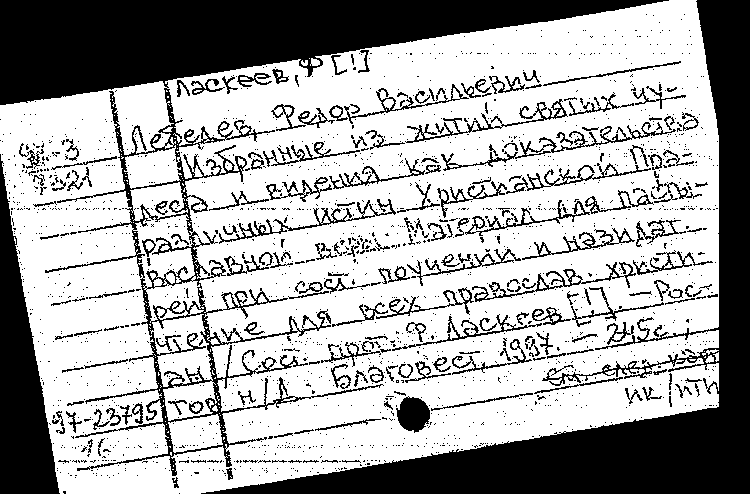 Ласкеев, Ф [!]
Лебедев, Федор Васильевич
Избранные из житий святых чу-
деса и видения как доказательства
различных истин Христианской Пра-
вославной веры. Материал для пасты-
рей при сост. поучений и назидат.
чтение для всех православ. христи-
ан / Сост. прот. Ф. Ласкеев [!]. – Рос-
тов н/Д : Благовест, 1997. – 245с. ;
см. след. карт
97-23795
пк/нтп